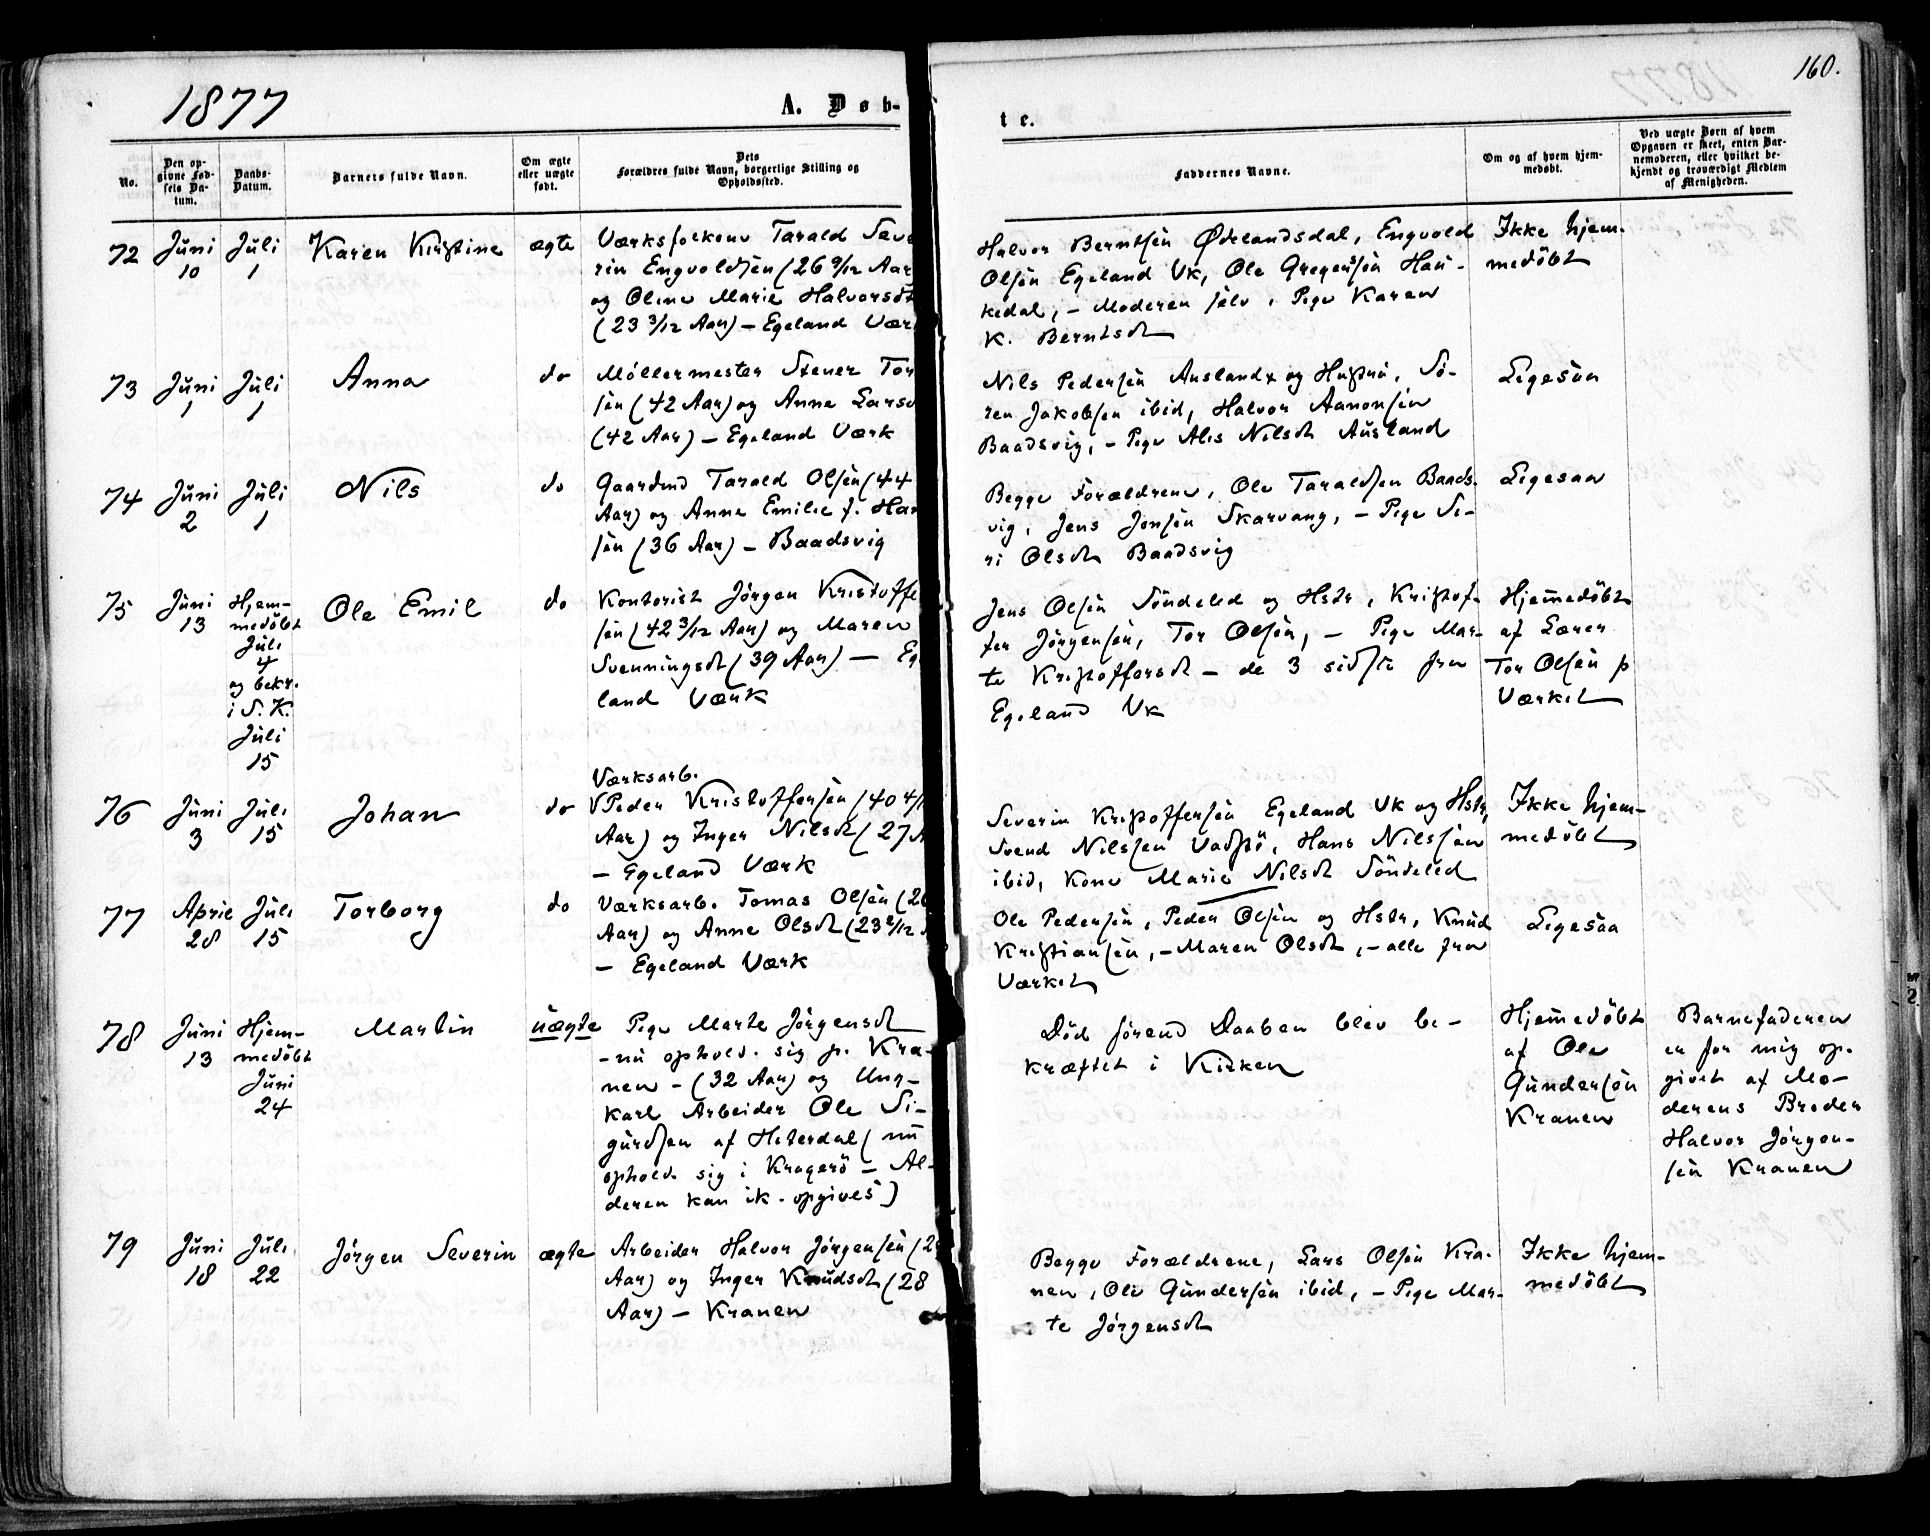 1877
160.
A. Døb-
te.
No.
Den op-
givne Fød-
sels Da-
tum.
Daabs-
Datum.
Barnets fulde Navn.
Om ægte
eller uægte
født.
Dets
Forældres fulde Navn, borgerlige Stilling og
Opholdssted.
Faddernes Navne.
Om og af hvem hjem-
medøbt.
Ved uægte Børn af hvem
Opgaven er skeet, enten Bar-
nemoderen, eller hvilket be-
kjendt og troværdigt Medlem
af Menigheden.
72 Juni 10 Juli 1 Karen Kristine ægte
Værksfolkene Tarald Seve
rin Engvoldsen (26 9/12 Aar
og Oline Marie Halvorsdt
(23 3/12 Aar) – Egeland Værk
Halvor Berntsen Øklandsdal, Engvold
Olsen Egeland Vk, Ole Gregersen Hau-
kedal, – Moderen selv, Pige Karen
K. Berntsdt
Ikke hjem-
medøbt
73 Juni 1 Juli 1 Anna do
Møllermester Stener Tor
sen (42 Aar) og Anne Larsd
(42 Aar) – Egeland Værk
Nils Pedersen Ausland og Hustru, Sø-
ren Jakobsen ibid, Halvor Aanonsen
Baadsvig, – Pige Alis Nilsdt Ausland
Ligesaa
74 Juni 2 Juli 1 Nils do
Gaardmd Tarald Olsen (44
Aar) og Anne Emilie f. Han
sen (36 Aar) – Baadsvig
Begge Forældrene, Ole Taraldsen Baads-
vig, Jens Jensen Skarvang, – Pige Si-
ri Olsdt Baadsvig
Ligesaa
75 Juni 13
Hjem-
medøbt
Juli
4
og bekr.
i S. K.
Juli
15
Ole Emil do
Kontorist Jørgen Kristoffe
sen (42 3/12 Aar) og Maren
Svenningsdt (39 Aar) – Eg
land Værk
Jens Olsen Søndeled og Hstr, Kristof-
fer Jørgensen, Tor Olsen, – Pige Mar-
te Kristoffersdt – de 3 sidste fra
Egeland Vk
Hjemmedøbt
af Lærer
Tor Olsen p
Værket
76 Juni 3 Juli 15 Johan do
Værksarb.
Peder Kristoffersen (40 4/1
Aar) og Inger Nilsdt (27 A
– Egeland Værk
Severin Kristoffersen Egeland Vk og Hstr,
Svend Nilssen Vadstø, Hans Nilssen
ibid, Kone Marie Nilsdt Søndeled
Ikke hjem-
medøbt
77 April 28 Juli 15 Torborg do
Værksarb. Tomas Olsen (26
Aar) og Anne Olsdt (23 2/12 A
– Egeland Værk
Ole Pedersen, Peder Olsen og Hstr, Knud
Kristiansen, – Maren Olsdt, – alle fra
Værket
Ligesaa
78 Juni 13
Hjem-
medøbt
Juni
24
Martin uægte
Pige Marte Jørgensdt
– nu ophold. sig p. Kra-
nen – (32 Aar) og Ung-
karl Arbeider Ole Si-
gurdsen af Hiterdal (nu
ophold. sig i Kragerö – Al-
deren kan ik. opgives)
Død førend Daaben blev be-
kræftet i Kirken
Hjemmedøbt
af Ole
Gundersen
Kranen
Barnefaderen
er for mig op-
givet af Mo-
derens Broder
Halvor Jørgen-
sen Kranen
79 Juni 18 Juli 22 Jørgen Severin ægte
Arbeider Halvor Jørgensen (2
Aar) og Inger Knudsdt (28
Aar) – Kranen
Begge Forældrene, Lars Olsen Kra-
nen, Ole Gundersen ibid, – Pige Mar-
te Jørgensdt
Ikke hjem-
medøbt